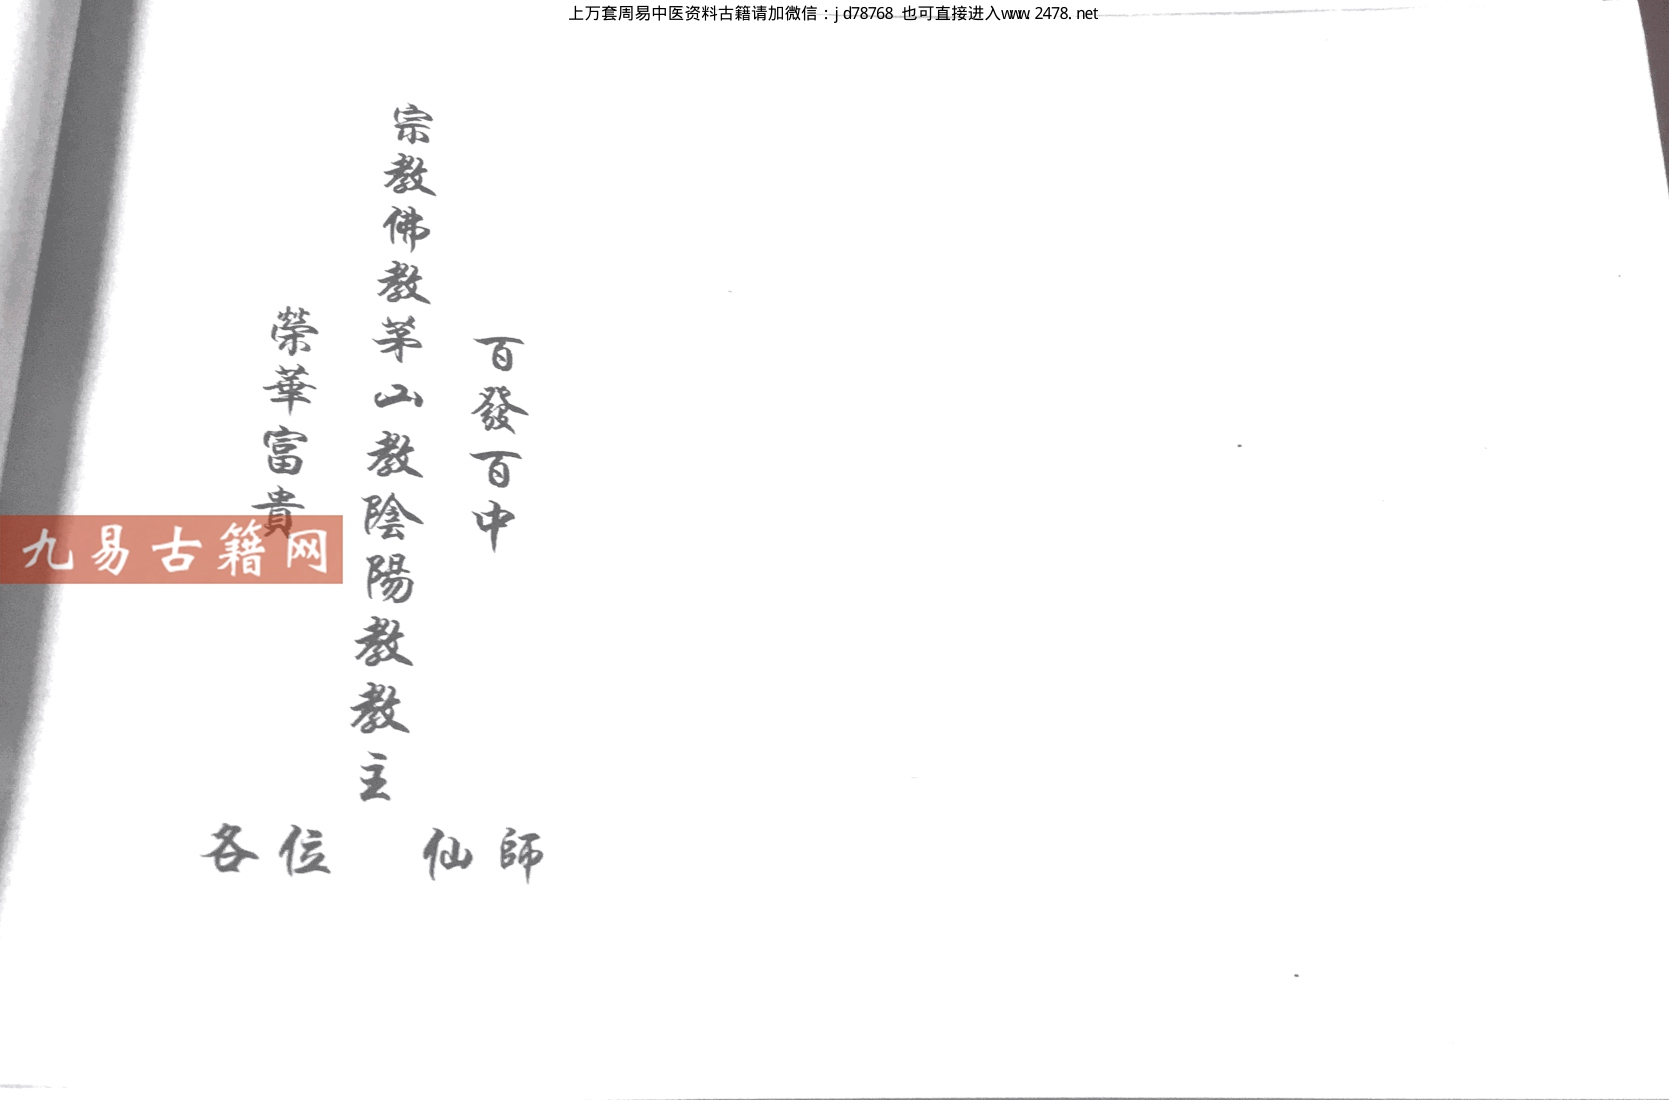 上万套周易中医资料古籍请加微信：jd78768 也可直接进入www.2478.net
百發百中
宗教佛教茅山教陰陽教教主
榮華富貴
各位 仙師
九易古籍网